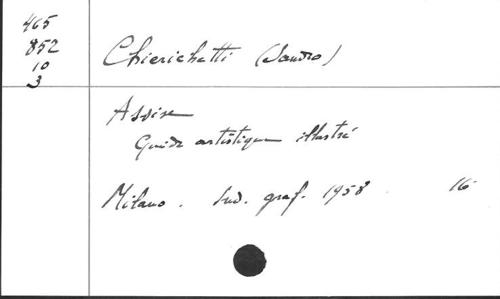 465
852
10
3
Chierichetti (Sandro)
Assise
Guide artistique illustré
Milano. Ind. graf. 1958 16